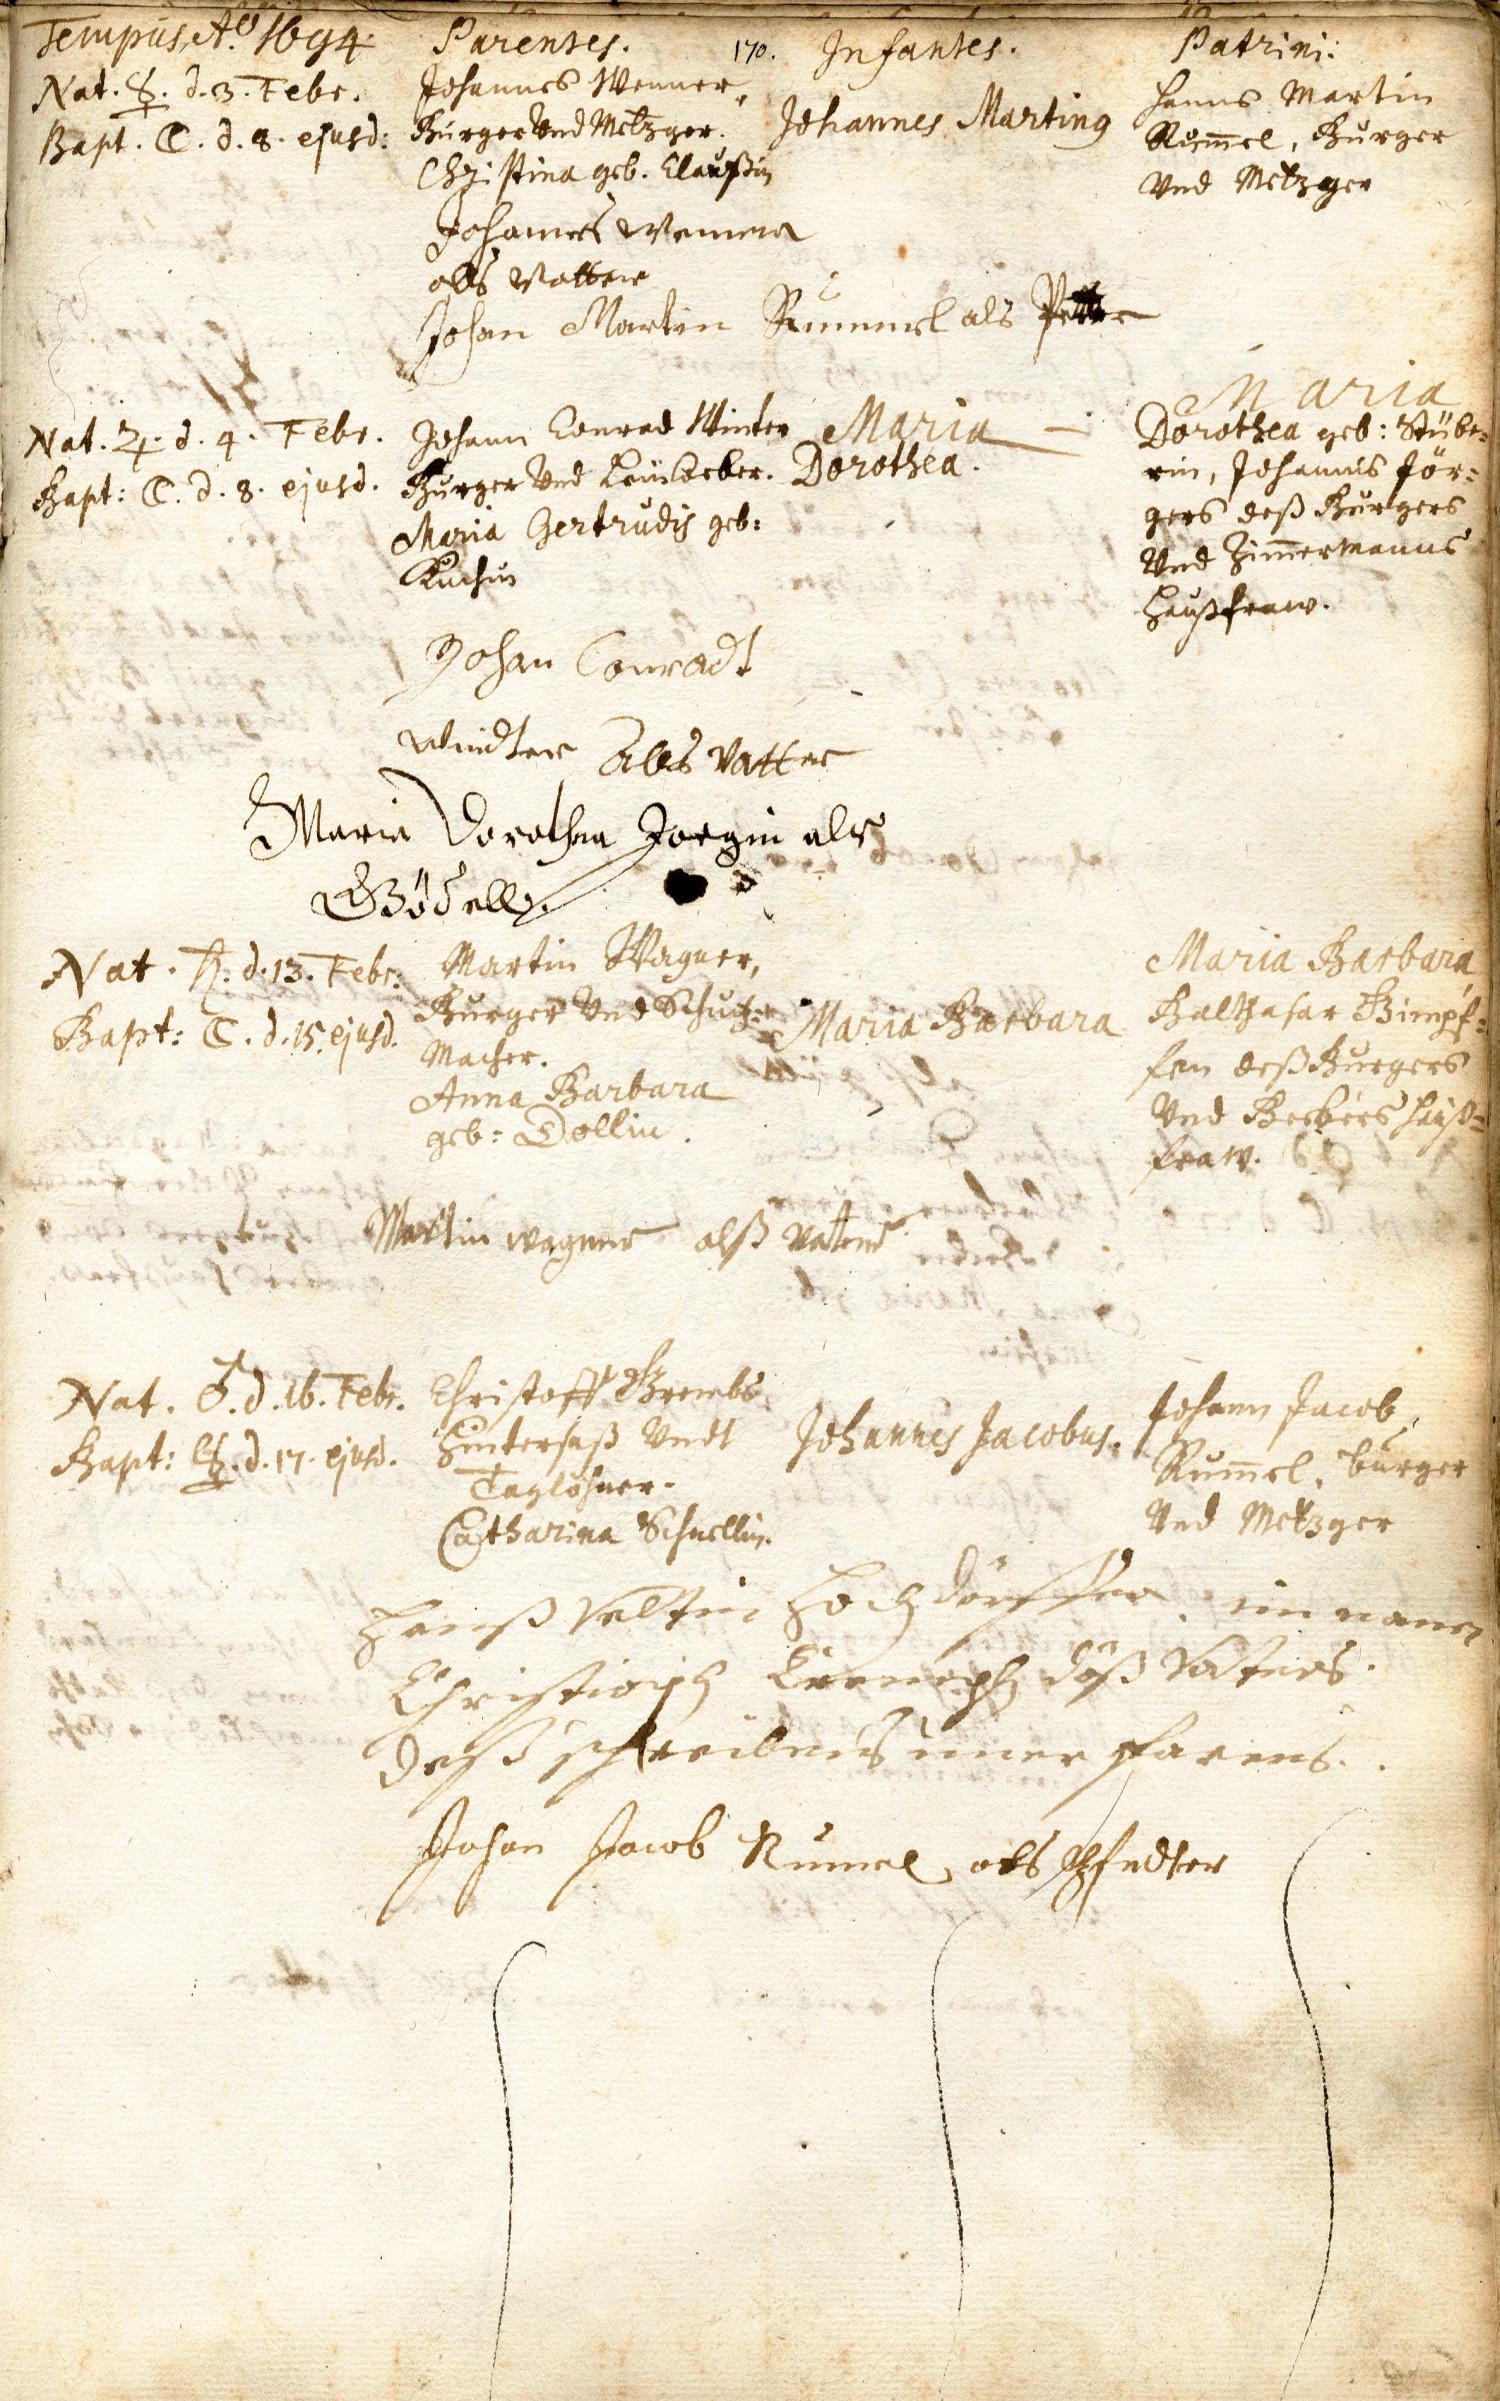 Tempus, Aō. 1694. Parentes. 170. Infantes. Patrini:
Nat. ☿. d. 3. Febr.
Bapt. ☾. d. 8. ejusd:
Johannes Wenner,
Burger Vnd Metzger.
Christina geb. Claußin
Johannes Martinus
Hanns Martin
Rummel, Burger
Vnd Metzger
Johannes Wenner
alls Vatter
Johan Martin Rummel als Petter
Nat. ♃. d. 4. Febr.
Bapt: ☾. d. 8. ejusd.
Johann Conrad Winter
Burger Vnd
Maria Gertrudis geb:
Kuchin
Maria
Dorothea.
Maria
Dorothea geb: Stübe-
rin, Johannis Jör-
gers deß Burgers
Vnd Zimmermanns
Haußfraw.
Johan Conradt
Windter Alls Vatter
Maria Dorothea Joergin als
Gödell
Nat. ♄. d. 13. Febr:
Bapt: ☾. d. 15. ejusd.
Martin Wagner,
Burger Vnd Schuch-
Macher.
Anna Barbara
geb: Dollin.
Maria Barbara
Maria Barbara,
Balthasar Gimpf-
fen deß Burgers
Vnd Beckers Hauß-
fraw.
Martin Wagner alß Vatter
Nat. ♂. d. 16. Febr.
Bapt: ☿. d. 17. ejusd.
Christoff Grembs
Hintersaß Vndt
Taglöhner.
Catharina Schnellin.
Johannes Jacobus.
Johann Jacob
Rummel, burger
Vnd Metzger
Hanß Veltin Hochdörffer im namen
Christoph deß Vatters.
Deß schreibens unerfarens.
Johan Jacob Rumel als Pfedter